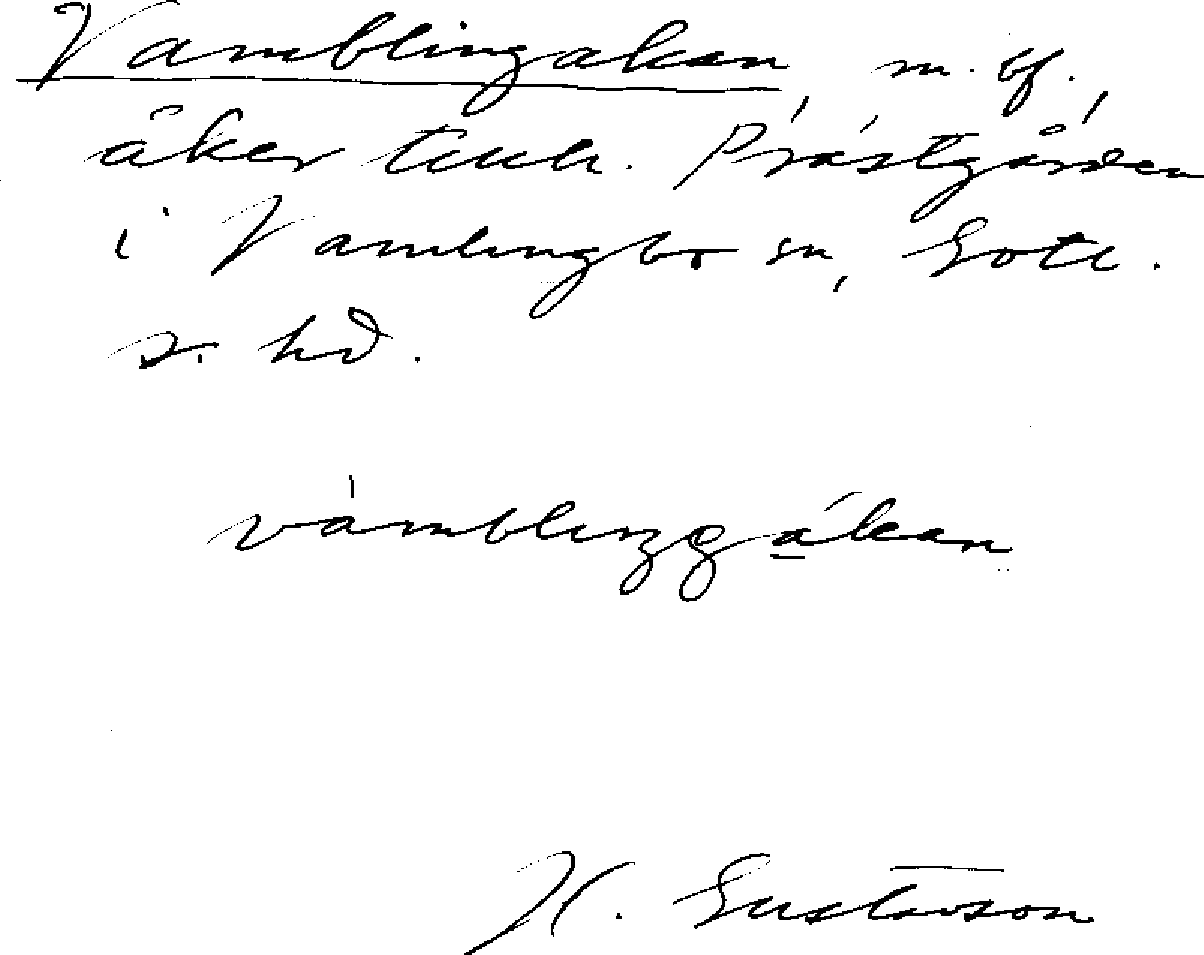 Vamblingakan, m. bf.,
åker tillh. Prästgården
i Vamlingbo sn, Gotl.
s. hd.
vámbliŋgákan
H. Gustavson